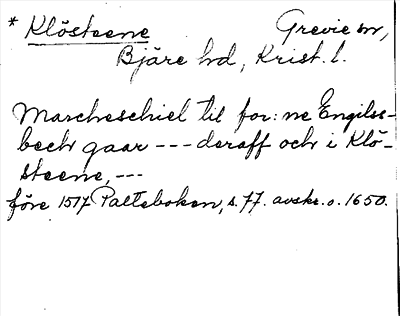 * Klösteene Grevie sn,
Bjäre hd, Krist. l.
Marcheschiel til for: ne Engilss-
bech gaar --- deraff och i Klö-
steene, ---
före 1517 Palteboken, s. 77. avskr. o. 1650.